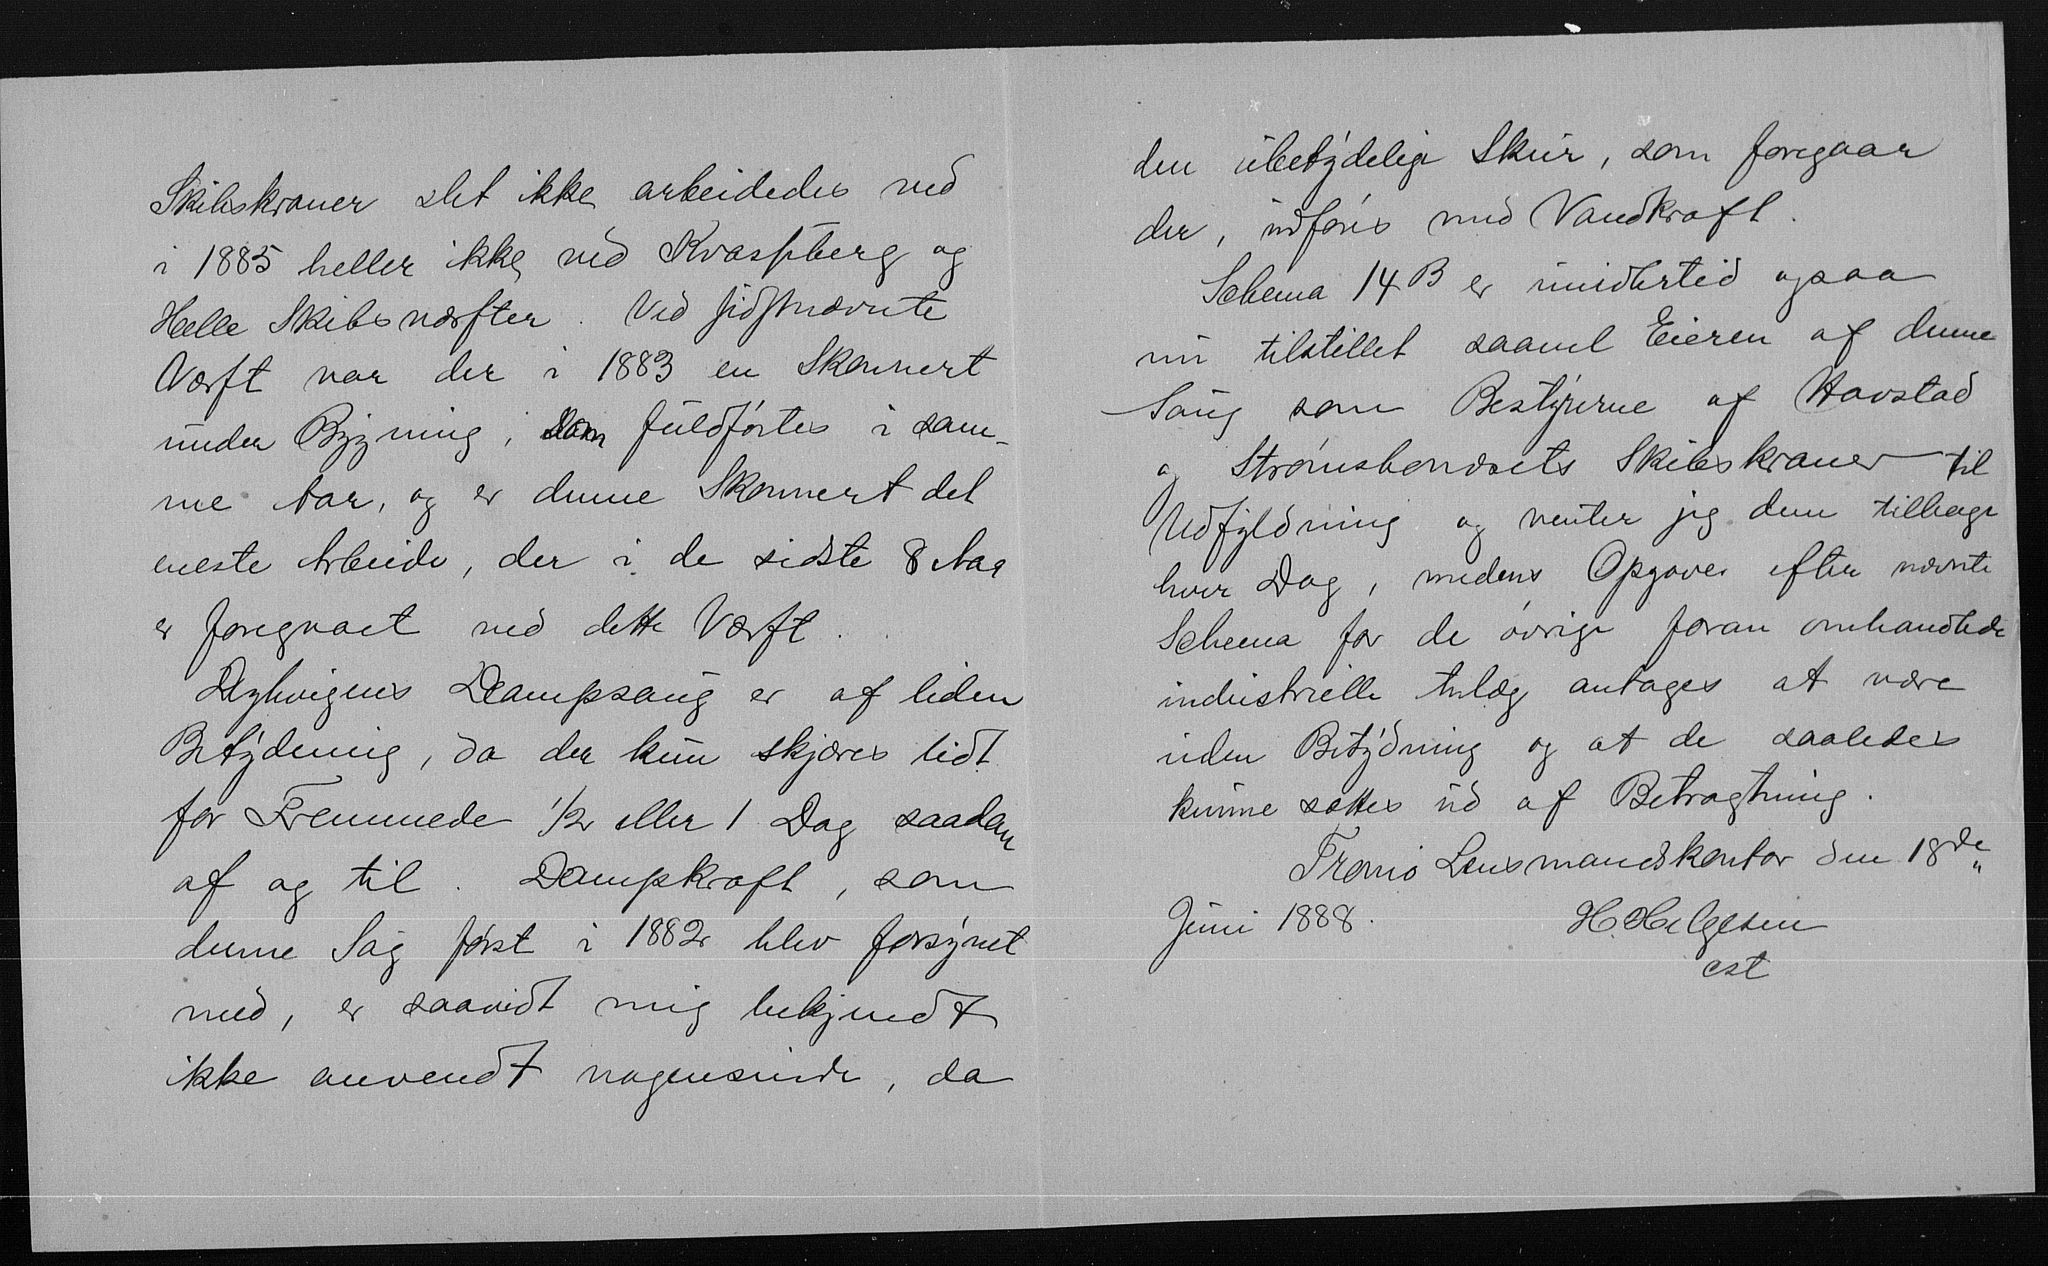 Skibskraner slet ikke arbeidedes ved
i 1885 heller ikke ved Kvastberg og
Helle Skibsværfter. Ved sidstnævnte
Værft var der i 1883 en Skonnert
under Bygning, som fuldførtes i sam-
me Aar, og er denne Skonnert det
eneste Arbeide, der i de sidste 8 Aar
er foregaaet ved dette Værft.
Dampsaug er af liden
Betydning, da der kun skjæres lidt
for Fremmede 1/2 eller 1 Dag saadan
af og til. Dampkraft, som
denne Sag først i 1882 blev forsynet
med, er saavidt mig bekjendt
ikke anvendt nogensinde, da
den ubetydelige Skur, som foregaar
der, udføres med Vandkraft.
Schema 14 B er imidlertid ogsaa
nu tilstillet saavel Eieren af denne
Saug som Bestyrerne af Havstad
og Strømsbonæsets Skibskraner til
Udfyldning og venter jeg dem tilbage
hver Dag, medens Opgaver efter nævnte
Schema for de øvrige foran omhandlede
industrielle Anlæg antages at være
uden Betydning og at de saaledes
kunne sættes ud af Betragtning.
Tromø Lensmandskontor den 18de
Juni 1888. H. Helgesen
cst